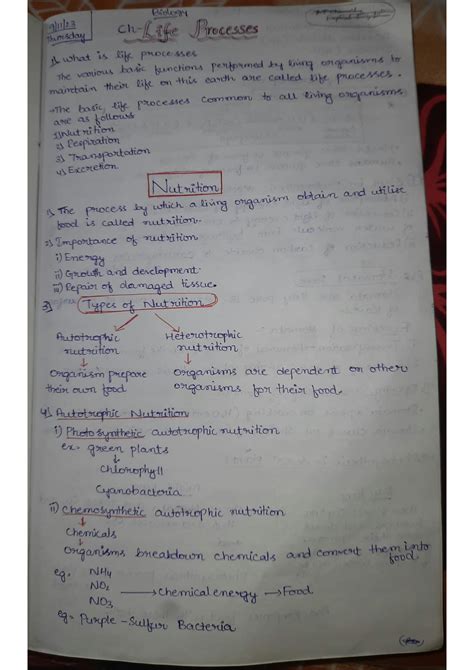 Biology
9/11/23
Thursday
Ch- Life Processes
1) What is life processes
The various basic functions performed by living organisms to
maintain their life on this earth are called life processes.
→The basic life processes common to all living organisms
are as follows
1) Nutrition
2) Respiration
3) Transportation
4) Excretion
Nutrition
1) The process by which a living organism obtain and utilise
food is called nutrition.
2) Importance of nutrition
i) Energy
ii) Growth and development.
iii) Repair of damaged tissue.
3) Types of Nutrition
Autotrophic nutrition
Heterotrophic nutrition
Organism prepare their own food
Organisms are dependent on other organisms for their food.
4) Autotrophic Nutrition
i) Photosynthetic autotrophic nutrition
ex- green plants
Chlorophyll
Cyanobacteria
ii) Chemosynthetic autotrophic nutrition
Chemicals
Organisms breakdown chemicals and convert them into
food.
eg. NH4
NO2 → chemical energy → Food
NO3
eg- Purple-Sulfur Bacteria